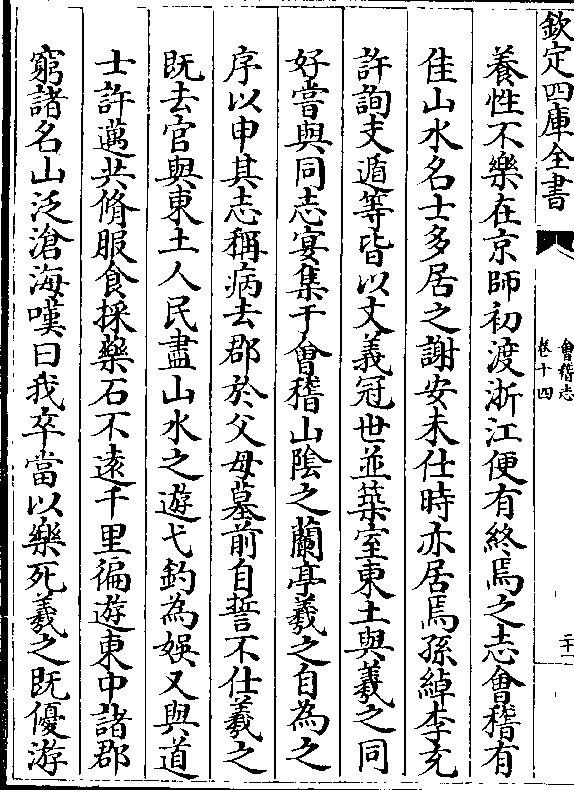 欽定四庫全書
會稽志
卷十四
二十一
養性不樂在京師初渡浙江便有終焉之志會稽有
佳山水名士多居之謝安未仕時亦居焉孫綽李充
許詢支遁等皆以文義冠世並築室東土與羲之同
好嘗與同志宴集于會稽山陰之蘭亭羲之自為之
序以申其志稱病去郡於父母墓前自誓不仕羲之
既去官與東土人民盡山水之遊弋釣為娛又與道
士許邁共脩服食採藥石不遠千里徧遊東中諸郡
窮諸名山泛滄海嘆曰我卒當以樂死羲之既優游